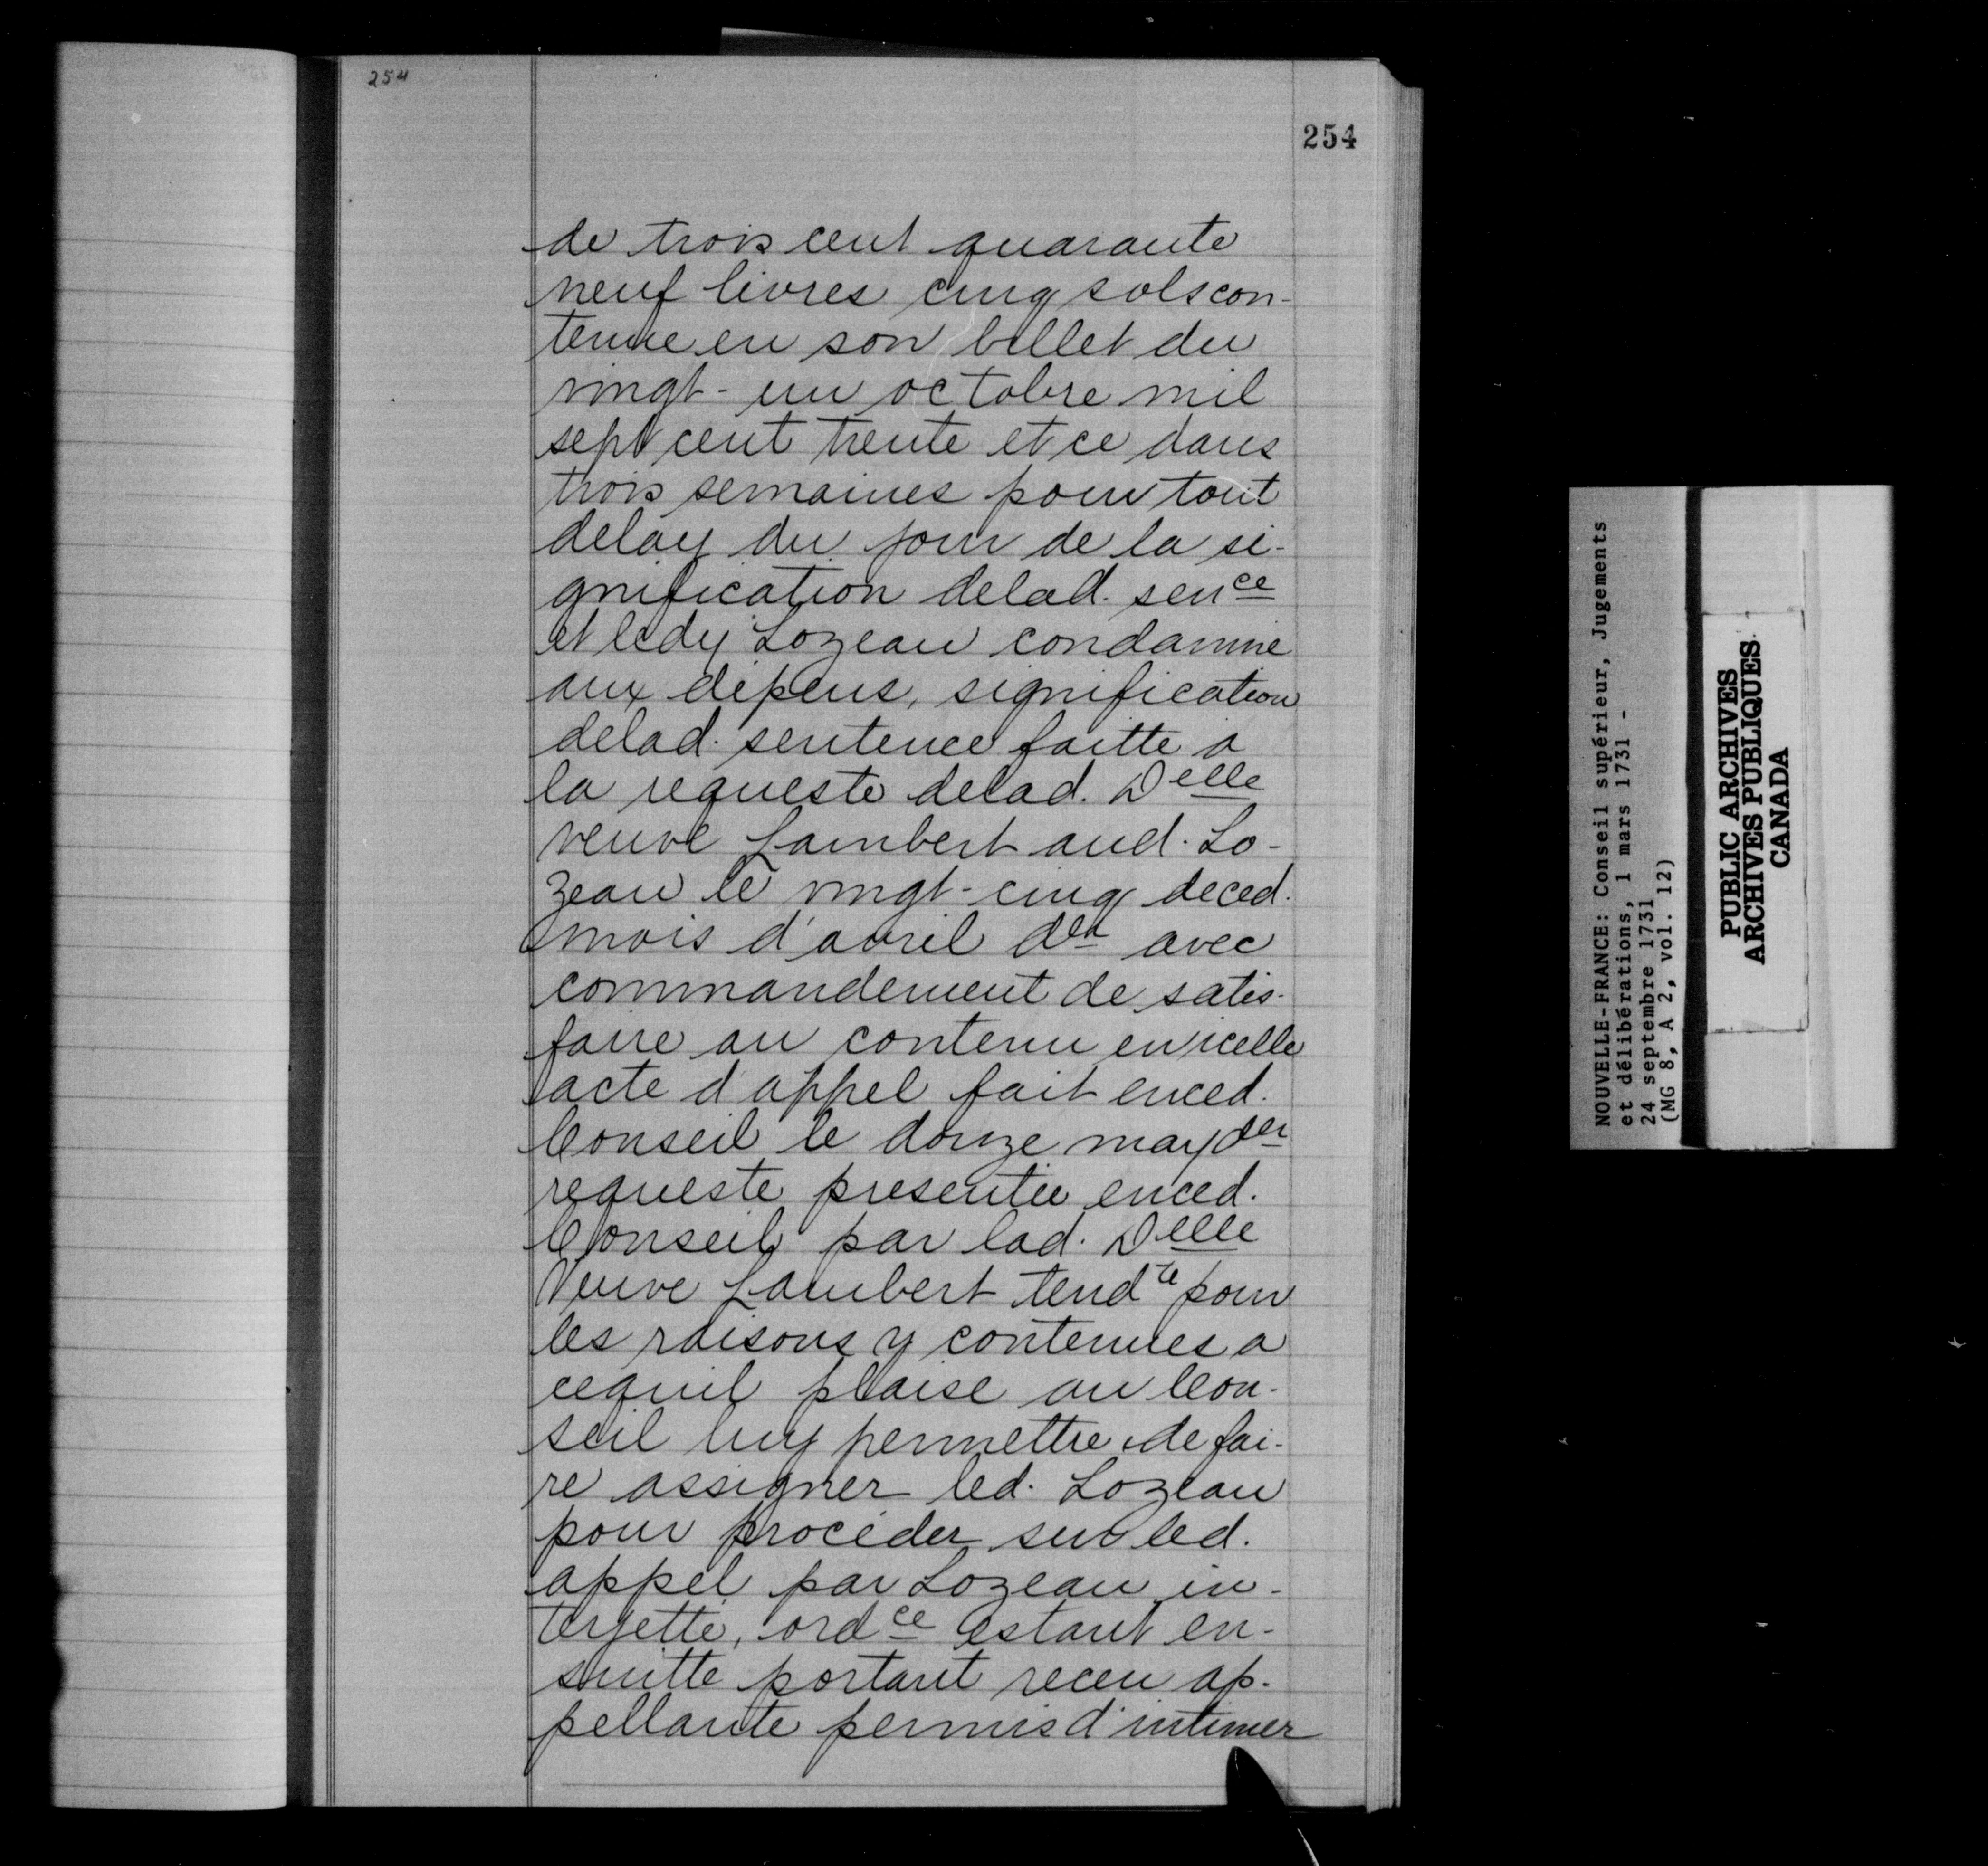 254
254
de trois cent quarante
neuf livres cinq sols con-
tenue en son billet du
vingt-un octobre mil
sept cent trente et ce dans
trois semaines pour tout
delay du jour de la si-
gnification delad. sence
et ledy Lozeau condamné
aux dépens, signification
delad. sentence faitte a
la requeste delad. Delle
veuve Lambert aud. Lo-
zeau le vingt-cinq deced.
mois d'avril der avec
commandement de satis-
faire au contenu en icelle
acte d'appel fait enced.
Conseil le douze may der
requeste presentée enced.
Conseil par lad. Delle
Veuve Lambert tendte pour
les raisons y contenues a
cequil plaise au Con-
seil luy permettre de fai-
re assigner led. Lozeau
pour procéder sur led.
appel par Lozeau in-
terjetté, ordce estant en-
suitte portant receu ap-
pellante permis d'intimer
NOUVELLE-FRANCE: Conseil supérieur, Jugements
et délibérations, 1 mars 1731 -
24 septembre 1731
(MG 8, A 2, vol. 12)
PUBLIC ARCHIVES
ARCHIVES PUBLIQUES
CANADA